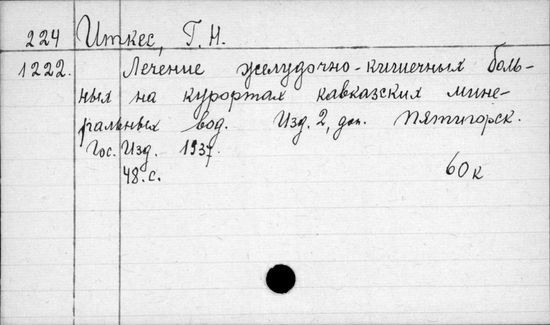 224 Иткес, Г.Н.
1222. Лечение желудочно-кишечных боль-
ных на курортах кавказских мине-
ральных вод. Изд. 2, доп. Пятигорск.
Гос. Изд. 1937.
48.с. 60к